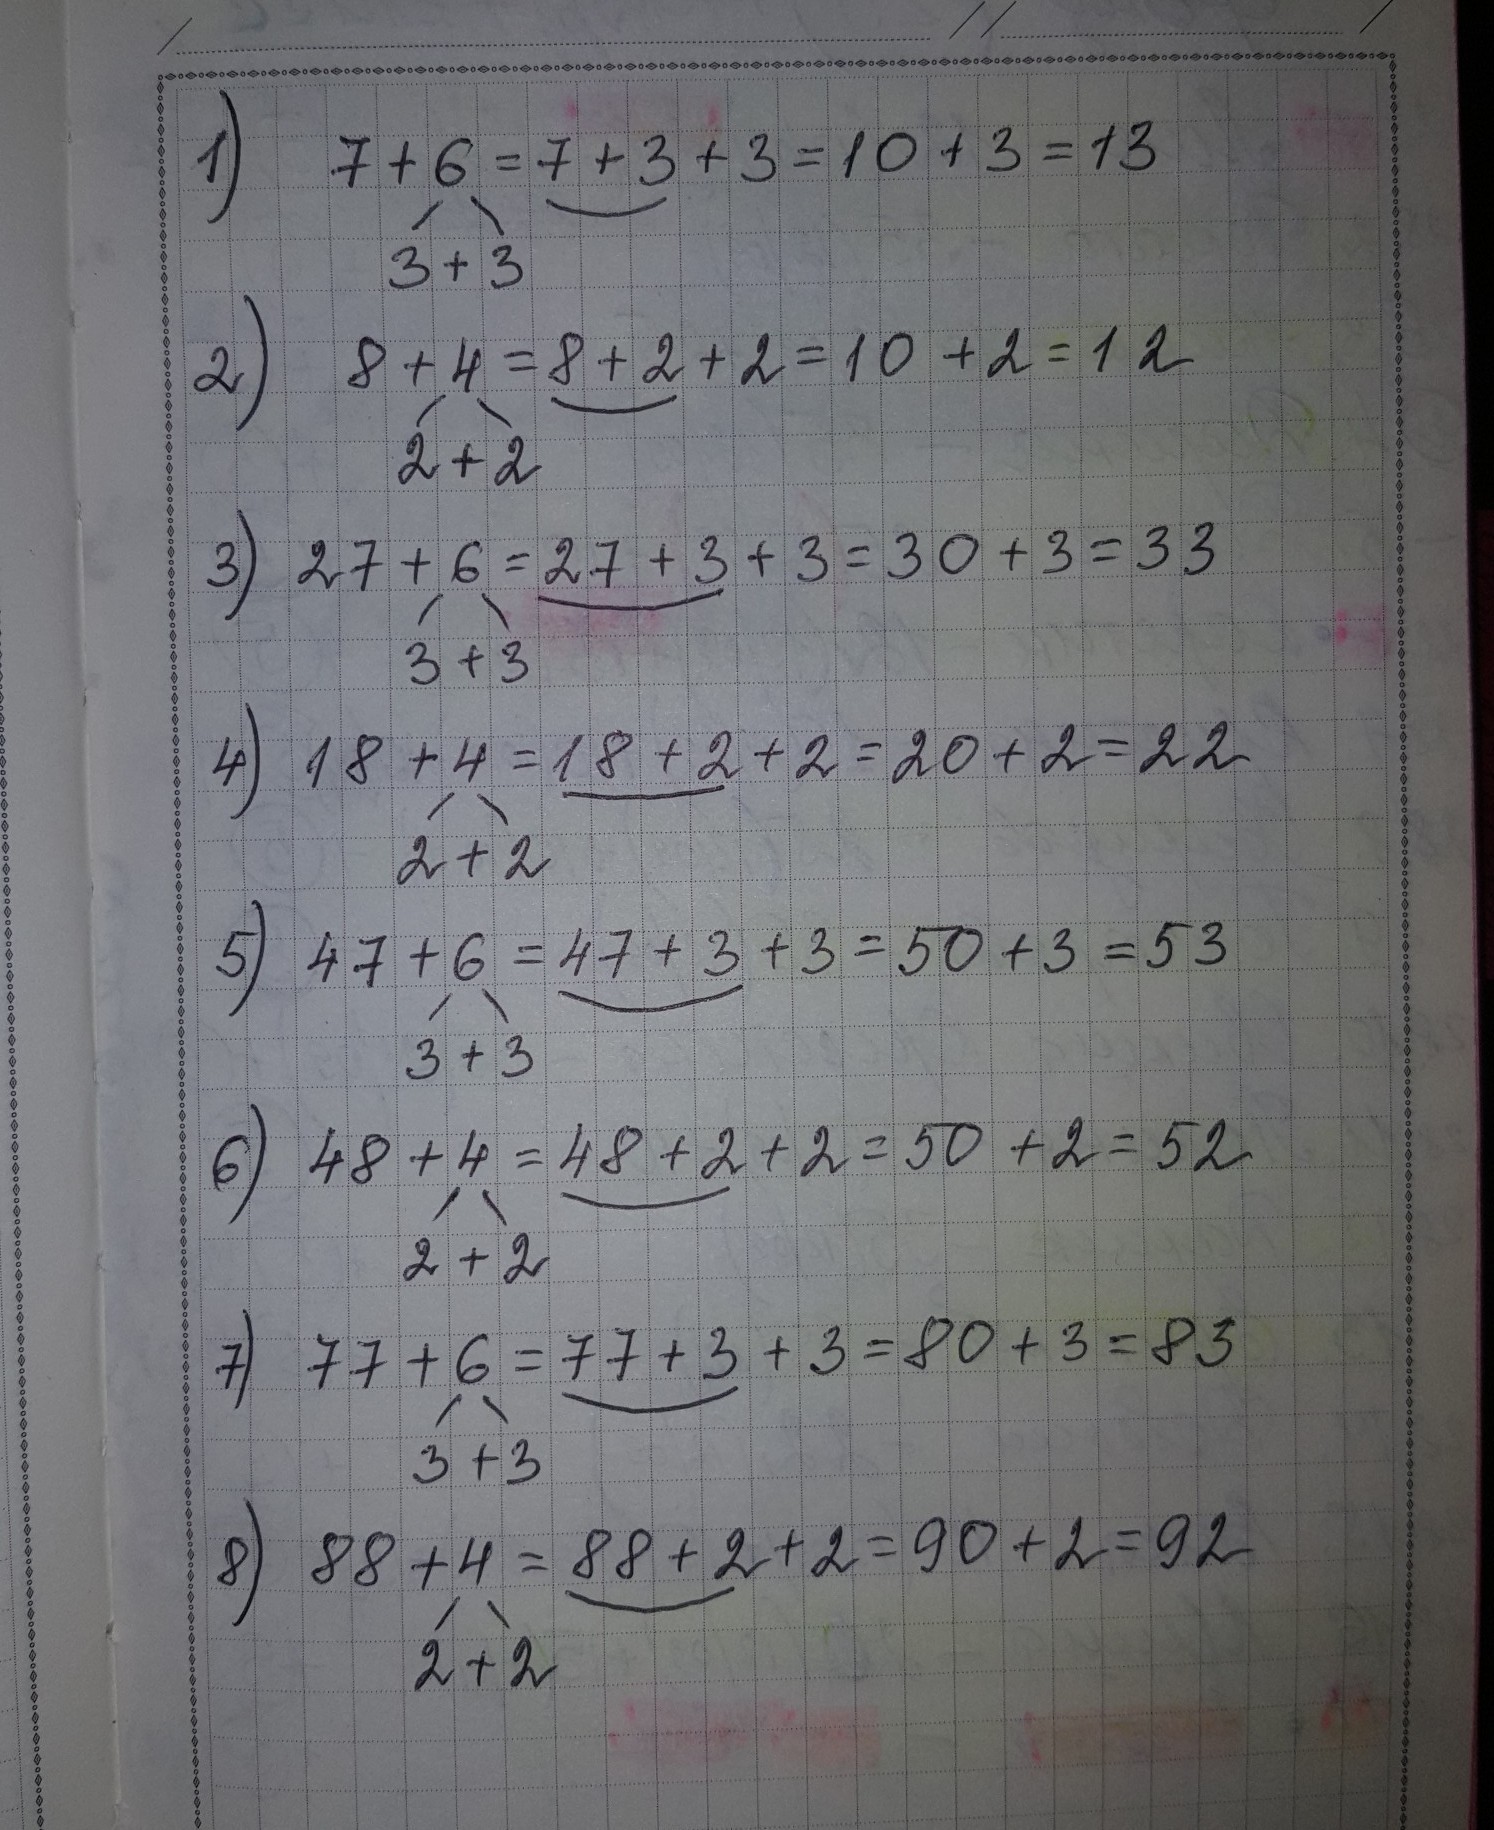 1) 7 + 6 = 7 + 3 + 3 = 10 + 3 = 13
3 + 3
2) 8 + 4 = 8 + 2 + 2 = 10 + 2 = 12
2 + 2
3) 27 + 6 = 27 + 3 + 3 = 30 + 3 = 33
3 + 3
4) 18 + 4 = 18 + 2 + 2 = 20 + 2 = 22
2 + 2
5) 47 + 6 = 47 + 3 + 3 = 50 + 3 = 53
3 + 3
6) 48 + 4 = 48 + 2 + 2 = 50 + 2 = 52
2 + 2
7) 77 + 6 = 77 + 3 + 3 = 80 + 3 = 83
3 + 3
8) 88 + 4 = 88 + 2 + 2 = 90 + 2 = 92
2 + 2